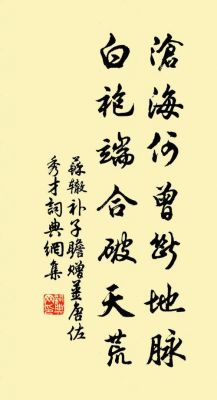 滄海何曾斷地脈
白袍端合破天荒
蘇轍補子瞻贈姜唐佐
秀才詞典網集